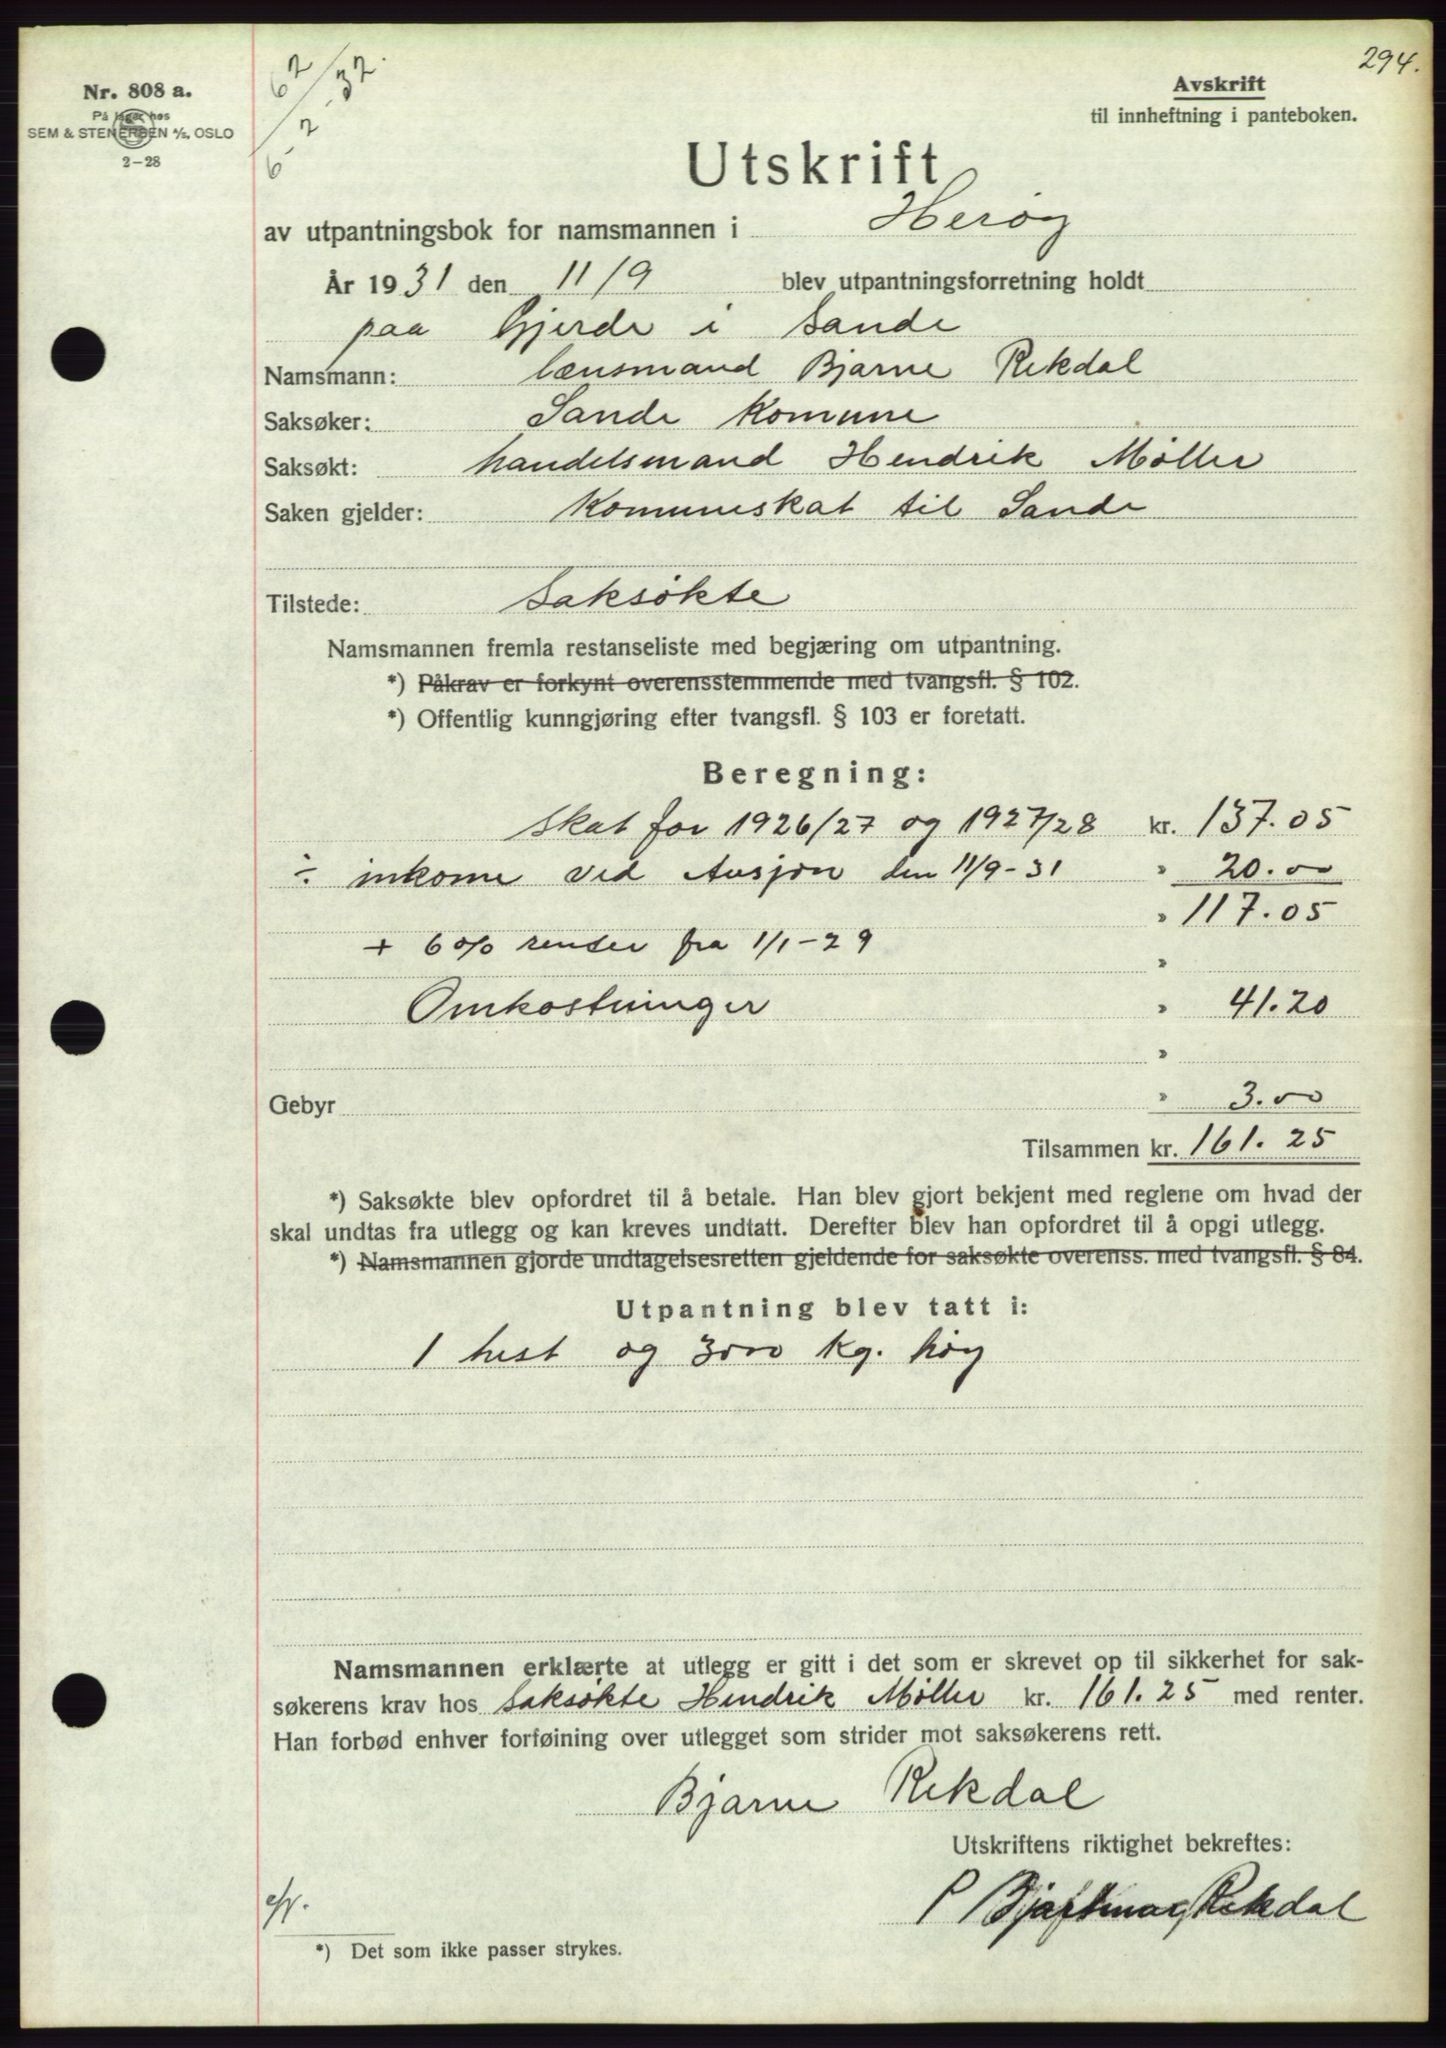 294.
Nr. 808 a.
På lager hos
SEM & STENERSEN A/S, OSLO
2-28
62/32
6-2
Avskrift
til innheftning i panteboken.
Utskrift
av utpantningsbok for namsmannen i Herøy
År 1931 den 11/9 blev utpantningsforretning holdt
paa Gjerde i Sande
Namsmann: lensmand Bjarne Rekdal
Saksøker: Sande Komune
Saksøkt: handelsmand Hendrik Møller
Saken gjelder: Komuneskat til Sande
Tilstede: Saksøkte
Namsmannen fremla restanseliste med begjæring om utpantning.
*) Påkrav er forkynt overensstemmende med tvangsfl. § 102.
*) Offentlig kunngjøring efter tvangsfl. § 103 er foretatt.
Beregning:
Skat for 1926/27 og 1927/28 kr. 137.05
÷ inkome ved Ausjon den 11/9-31 " 20.00
" 117.05
+ 6 % renter fra 1/1-29 "
Omkostninger " 41.20
"
Gebyr " 3.00
Tilsammen kr. 161.25
*) Saksøkte blev opfordret til å betale. Han blev gjort bekjent med reglene om hvad der
skal undtas fra utlegg og kan kreves undtatt. Derefter blev han opfordret til å opgi utlegg.
*) Namsmannen gjorde undtagelsesretten gjeldende for saksøkte overenss. med tvangsfl. § 84.
Utpantning blev tatt i:
1 hest og 3000 kg. høy
Namsmannen erklærte at utlegg er gitt i det som er skrevet op til sikkerhet for sak-
søkerens krav hos Saksøkte Hendrik Møller kr. 161.25 med renter.
Han forbød enhver forføining over utlegget som strider mot saksøkerens rett.
Bjarne Rekdal
Utskriftens riktighet bekreftes:
Rekdal
*) Det som ikke passer strykes.